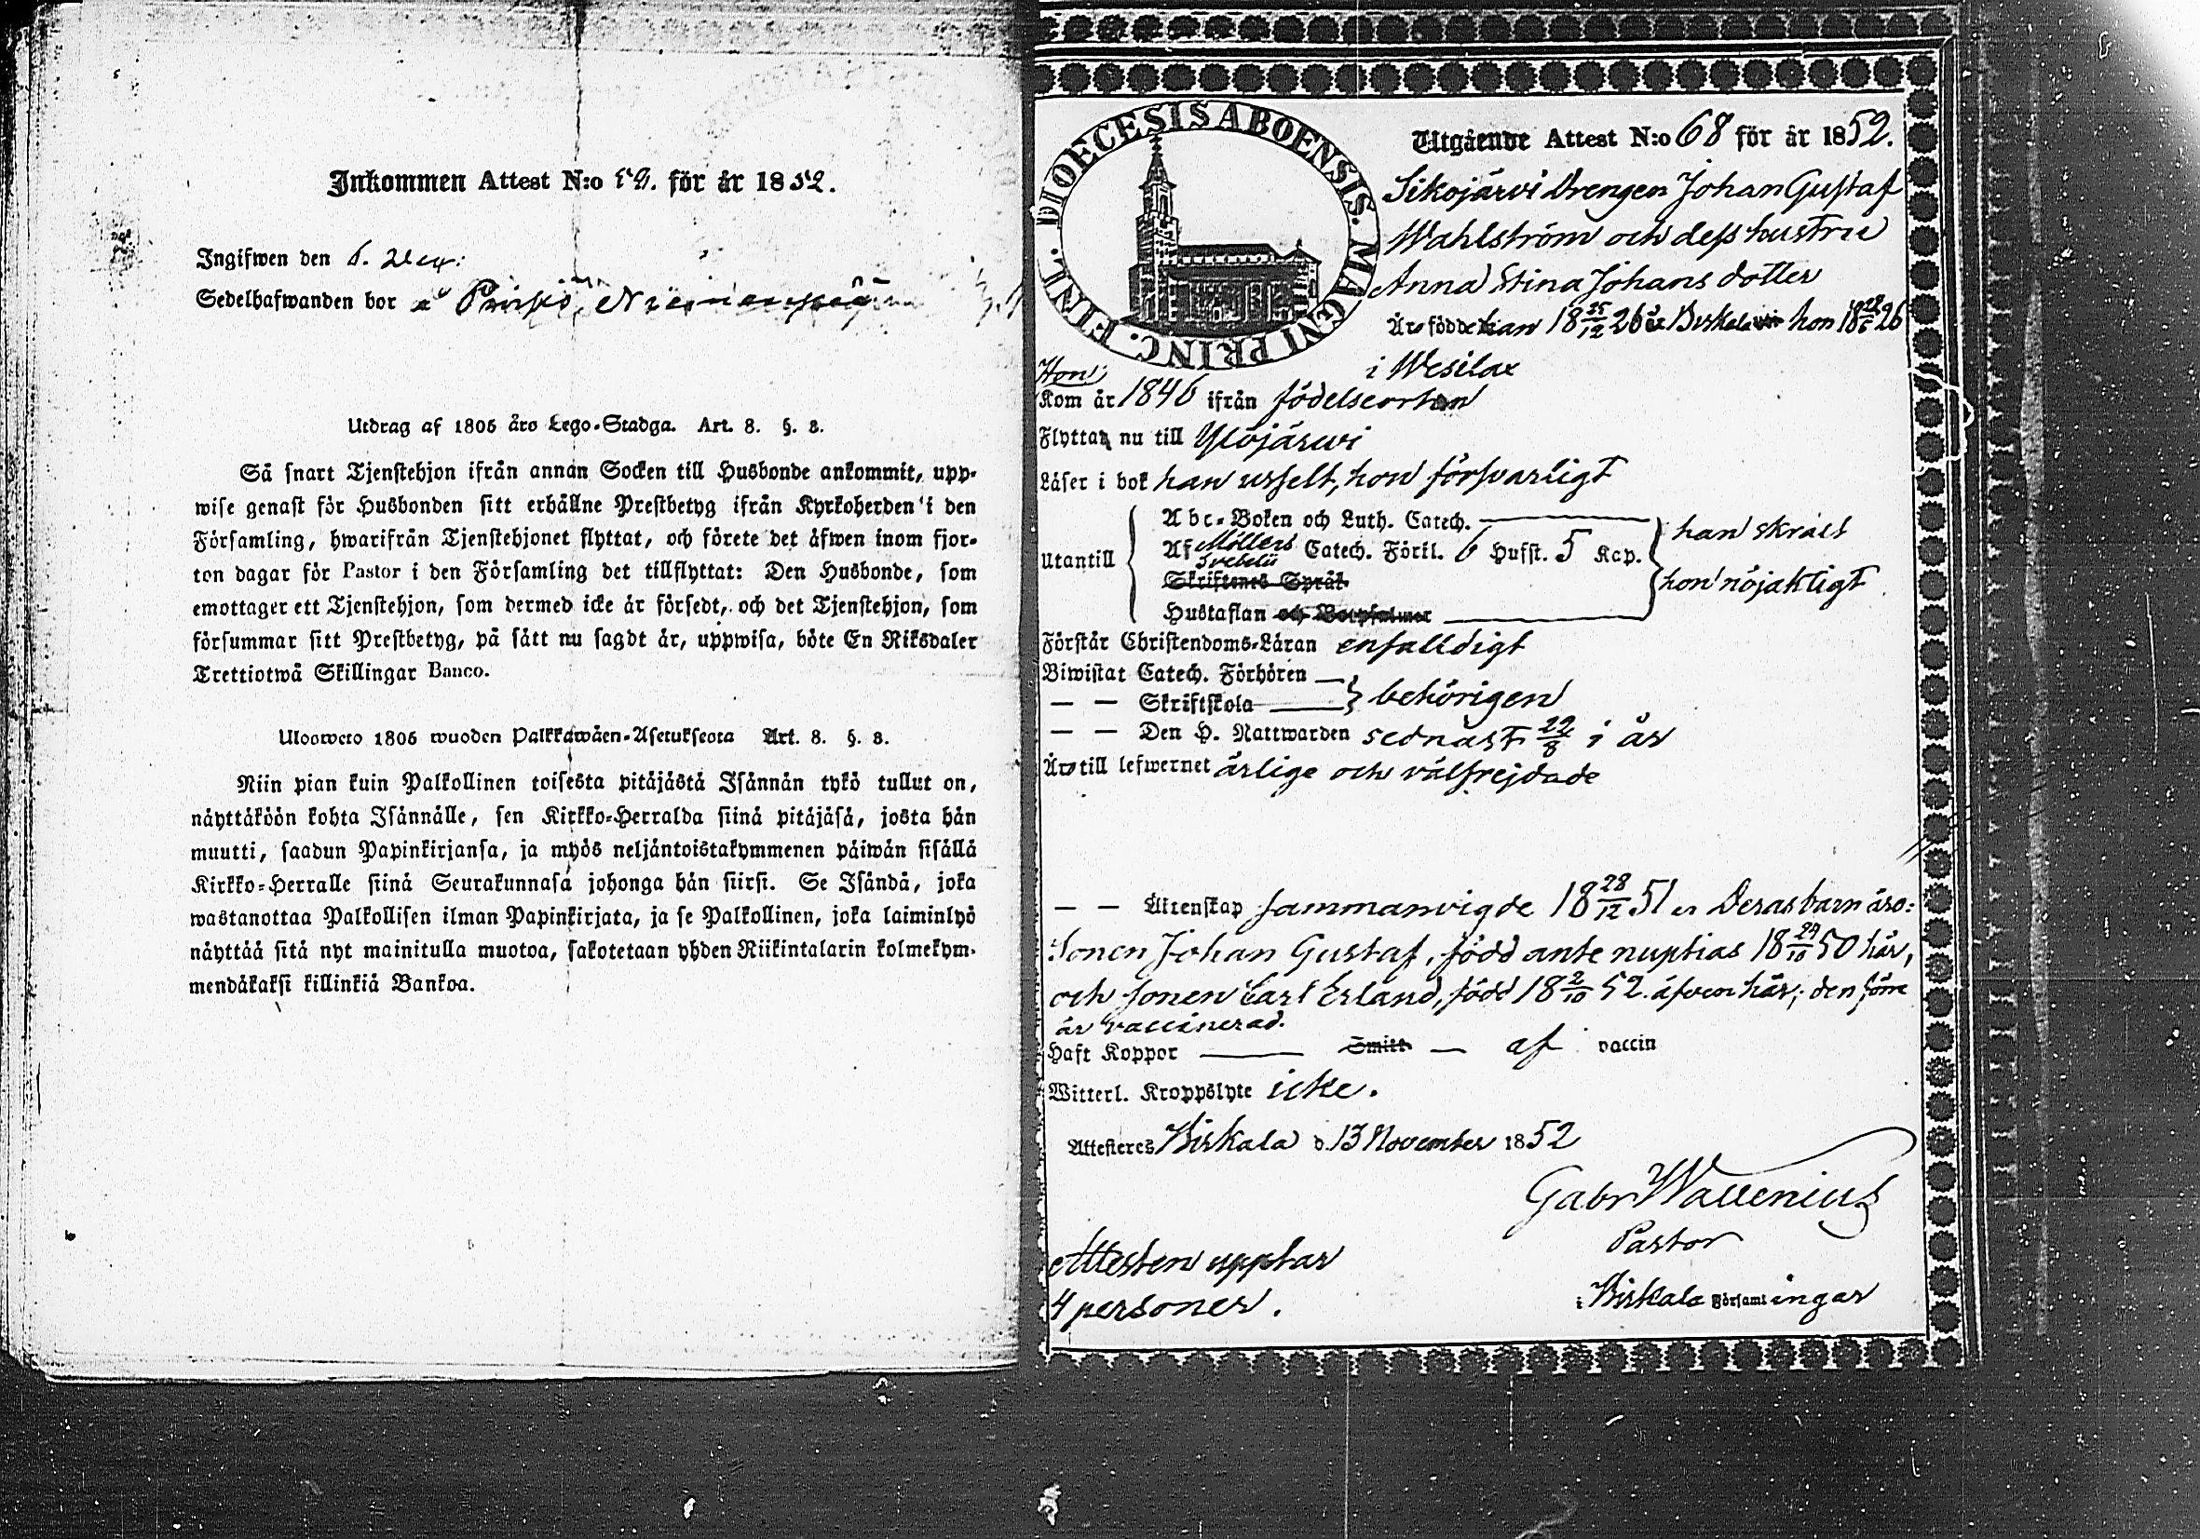 Inkommen Attest N:o 59. för år 1852.
Ingifwen den 6. Dec:
Sedelhafwanden bor å
Utdrag af 1805 års Lego-Stadga. Art. 8. §. 8.
Så snart Tjenstehjon ifrån annan Socken till Husbonde ankommit, upp-
wise genast för Husbonden sitt erhållne Prestbetyg ifrån Kyrkoherden i den
Församling, hwarifrån Tjenstehjonet flyttat, och förete det äfwen inom fjor-
ton dagar för Pastor i den Församling det tillflyttat: Den Husbonde, som
emottager ett Tjenstehjon, som dermed icke är försedt, och det Tjenstehjon, som
försummar sitt Prestbetyg, på sätt nu sagdt är, uppwisa, böte En Riksdaler
Trettiotwå Skillingar Banco.
Uloswero 1805 wuoden Palkkawäen-Asetuksesta Art. 8. §. 8.
Niin pian kuin Palkollinen toisesta pitäjästä Isännän tykö tullut on,
näyttäköön kohta Isännälle, sen Kirkko-Herralda siinä pitäjäsä, josta hän
muutti, saadun Papinkirjansa, ja myös neljäntoistakymmenen päiwän sisällä
Kirkko-Herralle siinä Seurakunnasa johonga hän siirsi. Se Isändä, joka
wastanottaa Palkollisen ilman Papinkirjata, ja se Palkollinen, joka laiminlyö
näyttää sitä nyt mainitulla muotoa, sakotetaan yhden Riikintalarin kolmekym-
mendäkaksi killinkiä Bankoa.
DIOECESIS ABOENSIS. MAGNI PRINC. FINL.
Utgående Attest N:o 68 för år 1852.
Sikojärvi Drengen Johan Gustaf
Wahlström och dess hustru
Anna Stina Johans dotter
Äro födde han 18 25/12 26 i Birkala hon 18 28/5 26
i Wesilax
Hon
Kom år 1846 ifrån födelseorten
Flyttar nu till Ylöjärwi
Läser i bok han usselt, hon försvarligt
Utantill
Abc-Boken och Luth. Catech.
Af Möllers Catech. Förkl. 6 Hufst. 5 Kap.
Svebelii
Skriftenes Språk
Hustaflan och Botpsalmer
han skralt
hon nöjaktigt
Förstår Christendoms-Läran enfalldigt
Biwistat Catech. Förhören
— — Skriftskola behörigen
— — Den H. Nattwarden sednast 29/8 i år
Äro till lefwernet ärlige och välfrejdade
— — Äktenskap sammanvigde 18 28/12 51 Deras barn äro:
Sonen Johan Gustaf, född ante nuptias 18 29/10 50 här,
och sonen Carl Erland, född 18 2/10 52 äfven här; den förre
är vaccinerad.
Haft Koppor — Smitt — af vaccin
Witterl. Kroppslyte icke.
Attesteres Birkala d. 13 November 1852
Gabr Wallenius
Pastor
i Birkala Församlingar
Attesten upptar
4 personer.